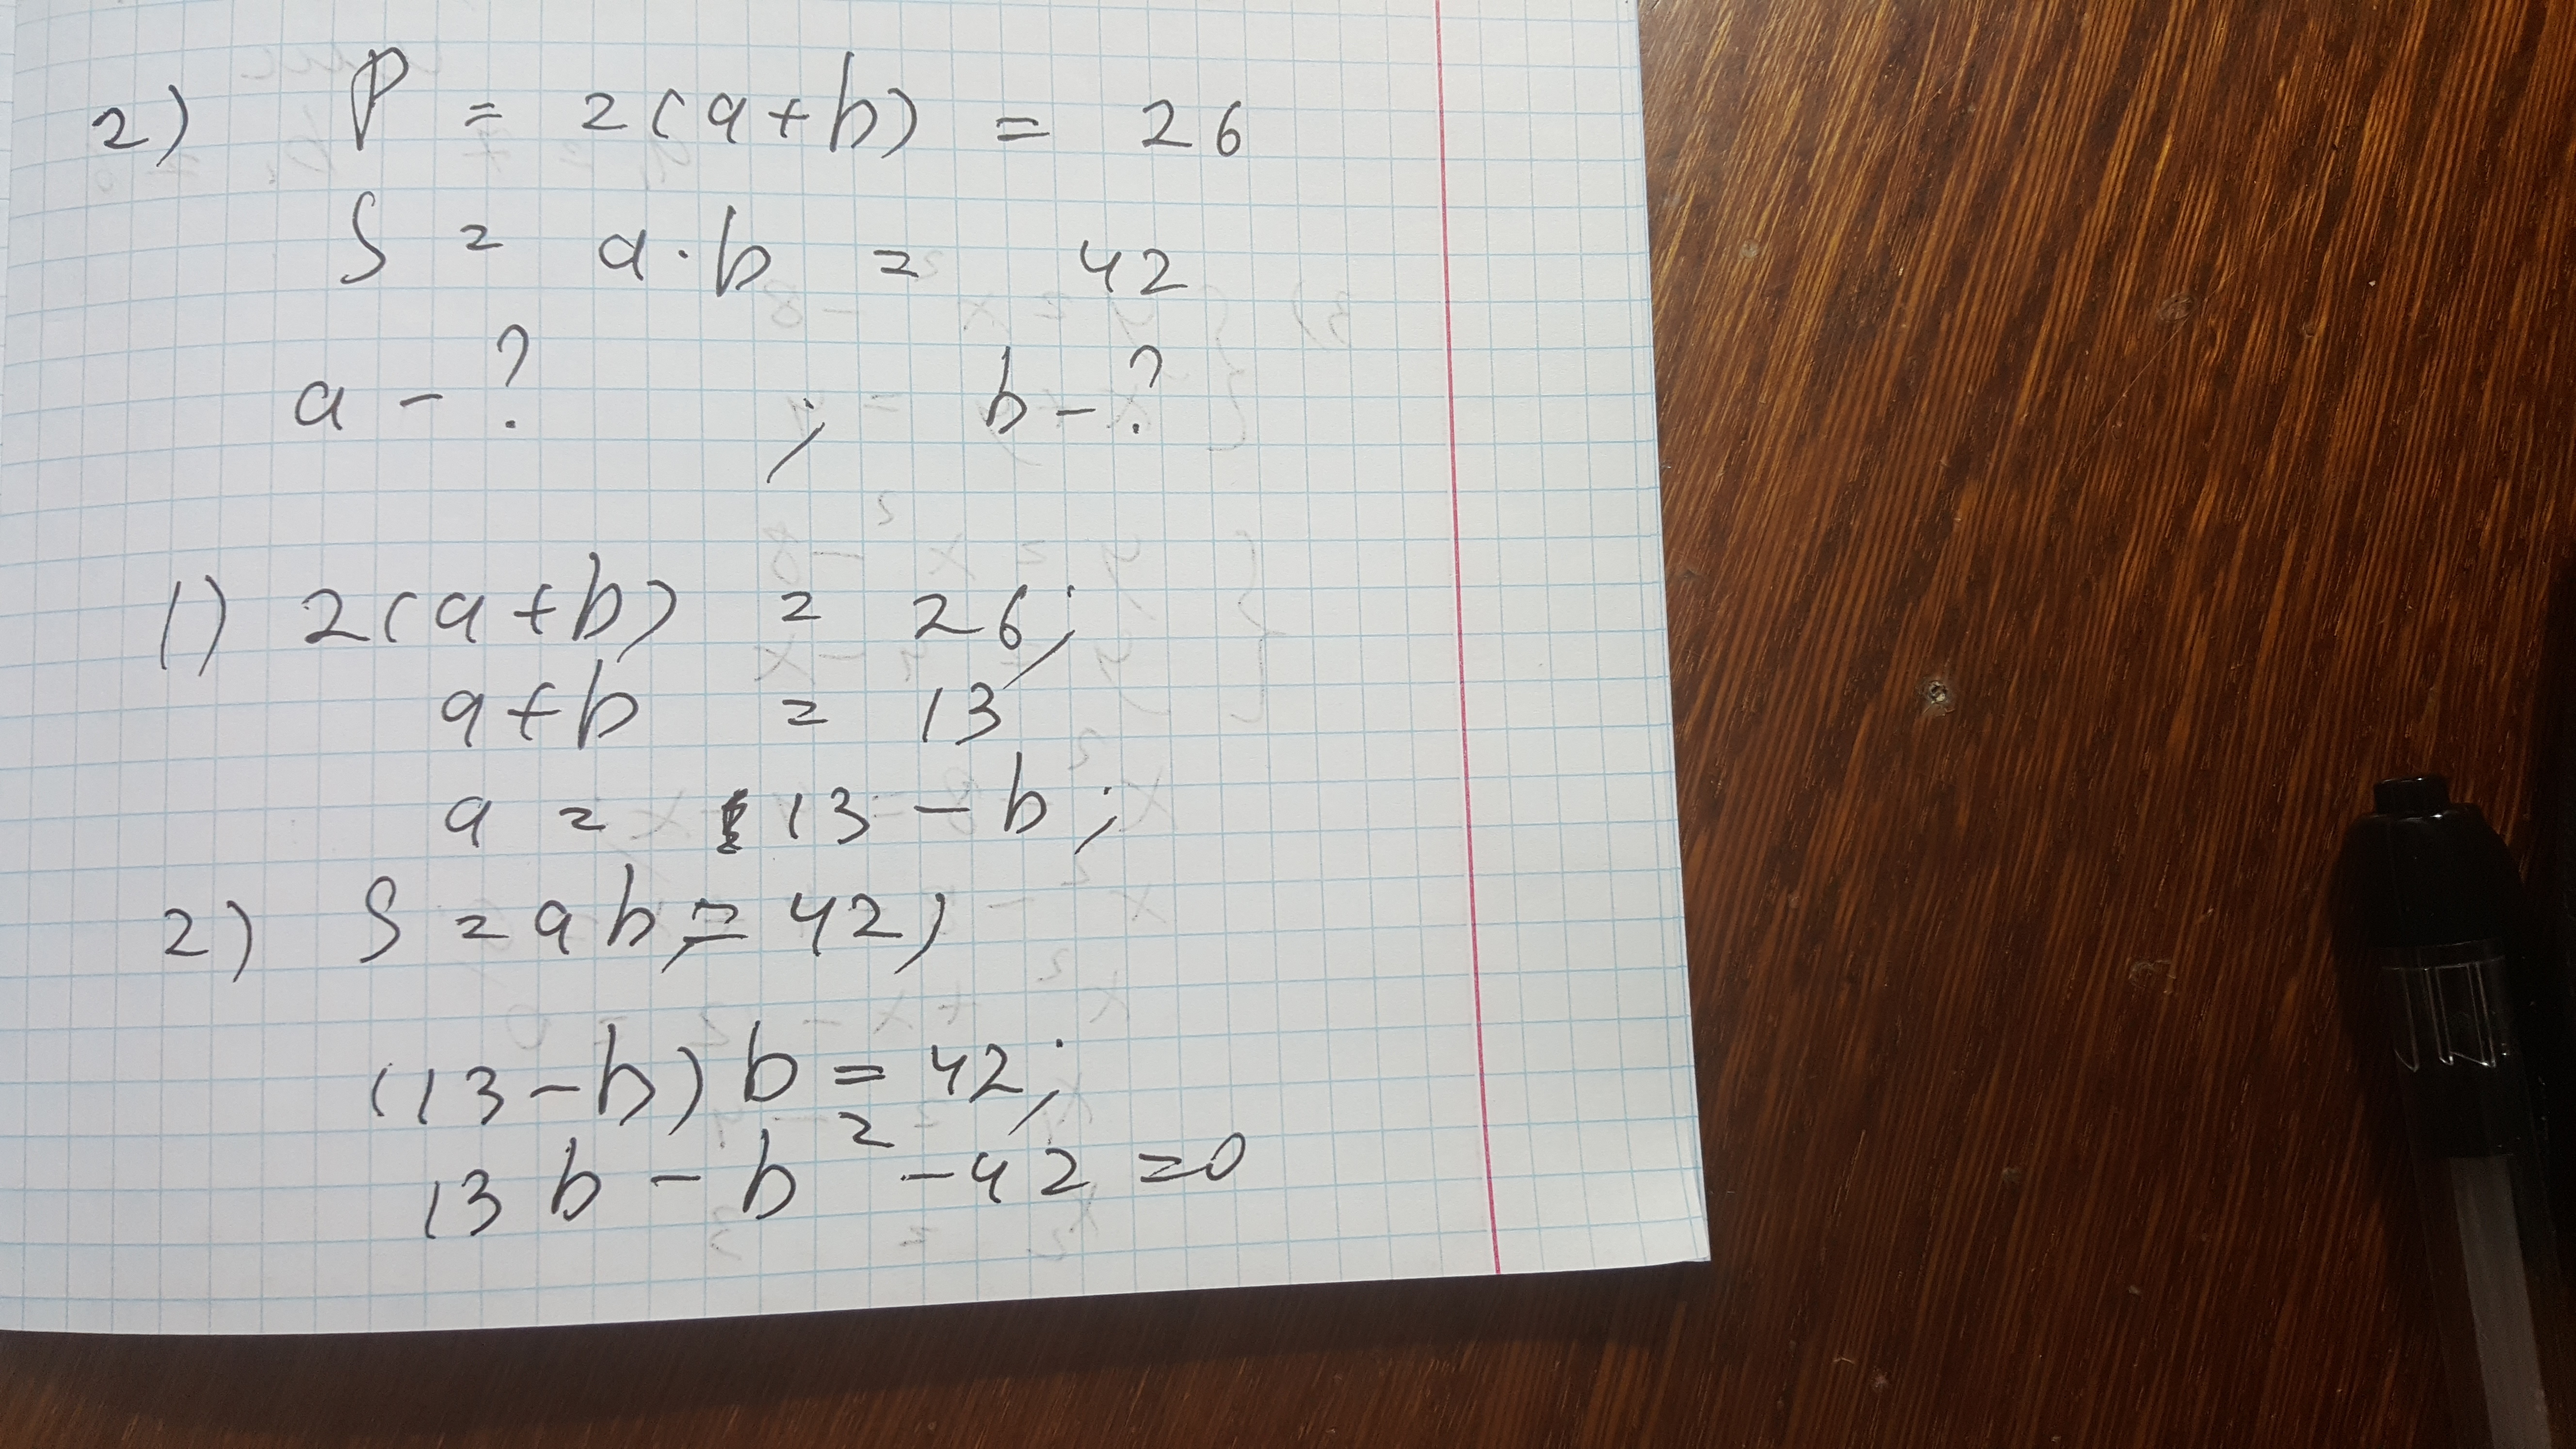 2) P = 2(a+b) = 26
S = a·b = 42
a - ? ; b - ?
1) 2(a+b) = 26;
a+b = 13
a = 13 - b;
2) S = ab = 42;
(13-b) b = 42;
13b - b² - 42 = 0